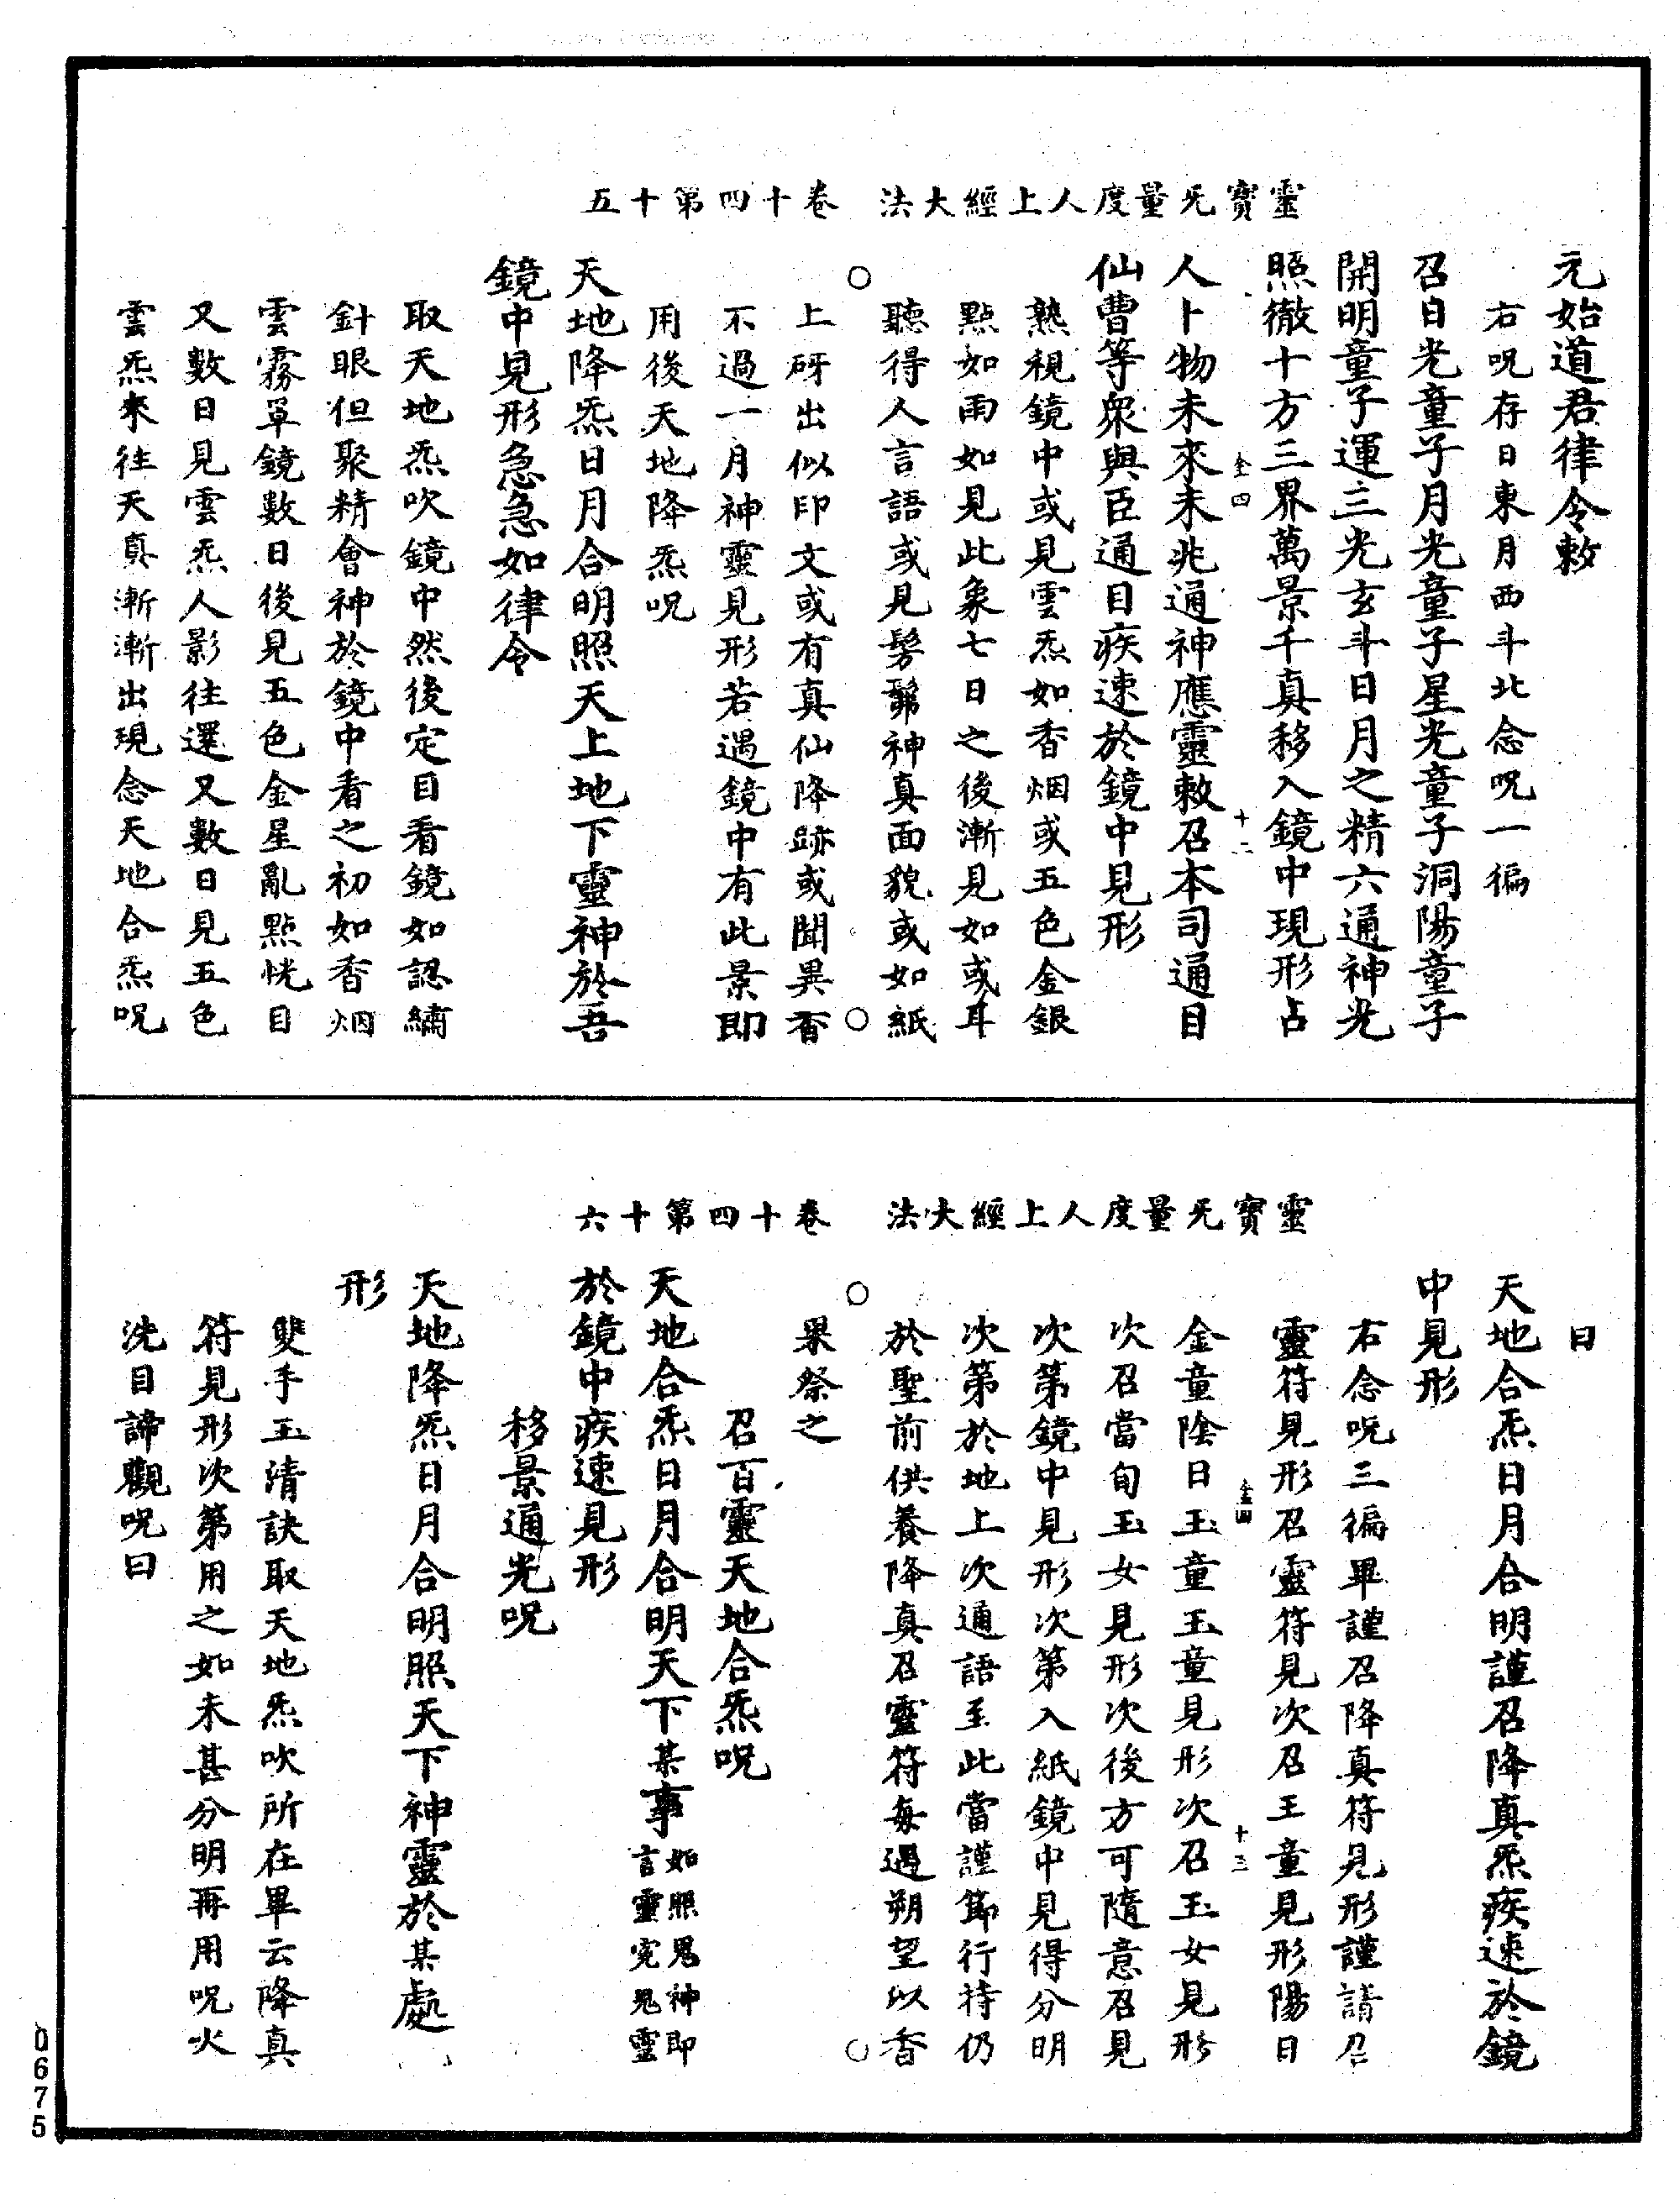 靈寶无量度人上經大法　卷十四第十五
元始道君律令敕
右呪存日東月西斗北念呪一徧
召日光童子月光童子星光童子洞陽童子
開明童子運三光玄斗日月之精六通神光
照徹十方三界萬景千真移入鏡中現形占
全四　十二
人卜物未來未兆通神應靈敕召本司通目
仙曹等衆與臣通目疾速於鏡中見形
熟視鏡中或見雲炁如香烟或五色金銀
點如雨如見此象七日之後漸見如或耳
聽得人言語或見髣髴神真面貌或如紙
上砑出似印文或有真仙降跡或聞異香
不過一月神靈見形若遇鏡中有此景即
用後天地降炁呪
天地降炁日月合明照天上地下靈神於吾
鏡中見形急急如律令
取天地炁吹鏡中然後定目看鏡如認繡
針眼但聚精會神於鏡中看之初如香烟
雲霧罩鏡數日後見五色金星亂點恍目
又數日見雲炁人影往還又數日見五色
雲炁來往天真漸漸出現念天地合炁呪
靈寶无量度人上經大法　卷十四第十六
曰
天地合炁日月合明謹召降真炁疾速於鏡
中見形
右念呪三徧畢謹召降真符見形謹請召
靈符見形召靈符見次召王童見形陽日
全四　十三
金童陰日玉童玉童見形次召玉女見形
次召當旬玉女見形次後方可隨意召見
次第鏡中見形次第入紙鏡中見得分明
次第於地上次通語至此當謹節行持仍
於聖前供養降真召靈符每遇朔望以香
果祭之
召百靈天地合炁呪
天地合炁日月合明天下某事如照鬼神即言靈寃鬼靈
於鏡中疾速見形
移景通光呪
天地降炁日月合明照天下神靈於某處
形
雙手玉清訣取天地炁吹所在畢云降真
符見形次第用之如未甚分明再用呪火
洗目諦觀呪曰
0675